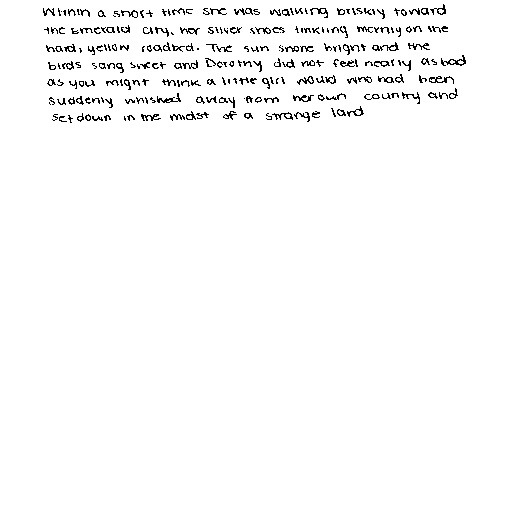 Within a short time she was walking briskly toward
the Emerald City, her silver shoes tinkling merrily on the
hard, yellow roadbed. The sun shone bright and the
birds sang sweet and Dorothy did not feel nearly as bad
as you might think a little girl would who had been
suddenly whisked away from her own country and
set down in the midst of a strange land